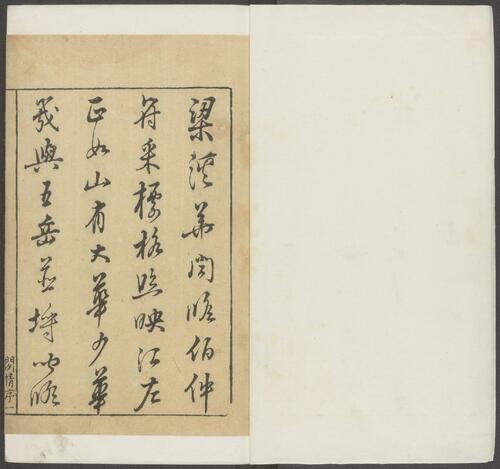 梁溪華聞修伯仲
符采標格照映江左
正如山有大華少華
幾與五岳並埒聞修
閒情序一